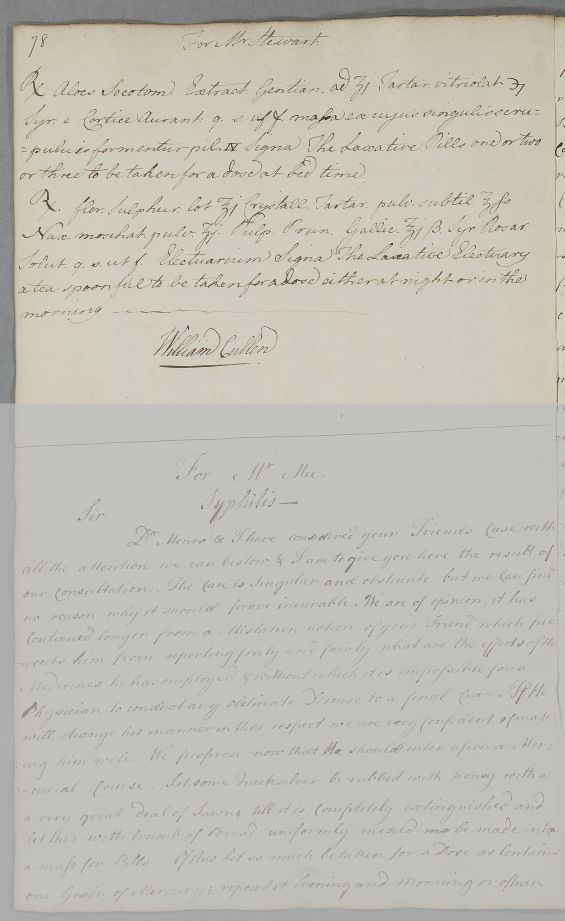 78
For Mr Stewart.
℞ Aloes Socotorin. Extract. Gentian. ad ʒj Tartar. vitriolat. ℈j
Syr. e Cortice Aurant. q. s. ut f. massa ex cujus singulis scru=
=pulis formentur pil. IV Signa The Laxative Pills one or two
or three to be taken for a dose at bed time
℞. flor. Sulphur. lot. ℥j Crystall. Tartar. pulv. subtil. ℥ß
Nux moschat. pulv. ʒj. Pulp. Prun. Gallic. ℥j ß. Syr. Rosar.
Solut. q. s. ut f. Electuarium Signa The Laxative Electuary
a tea spoonful to be taken for a dose either at night or in the
morning
William Cullen
For Mr Mee.
Syphilis—
Sir
Dr Monro & I have considered your Friends Case with
all the attention we can bestow & I am to give you here the result of
our Consultation. The Case is Singular and obstinate but we can find
no reason why it should prove incurable. We are of opinion, it has
Continued longer from a Mistaken notion of your Friend which pre=
=vents him from reporting freely and fairly what are the effects of the
Medicines he has employed & without which it is impossible for a
Physician to conduct any obstinate Disease to a final Cure. If He
will change his manner in this respect we are very confident of mak=
=ing him well. We propose now that He should enter upon a Mer=
=curial Course. Let some Quicksilver be rubbed with honey with a
a very great deal of Labour till it is Completely extinguished and
let this with Crumb of Bread uniformly mixed be made into
a mass for Pills. Of this let so much be taken for a Dose as Contains
one Grain of Mercury; repeat it Evening and Morning or oftner.